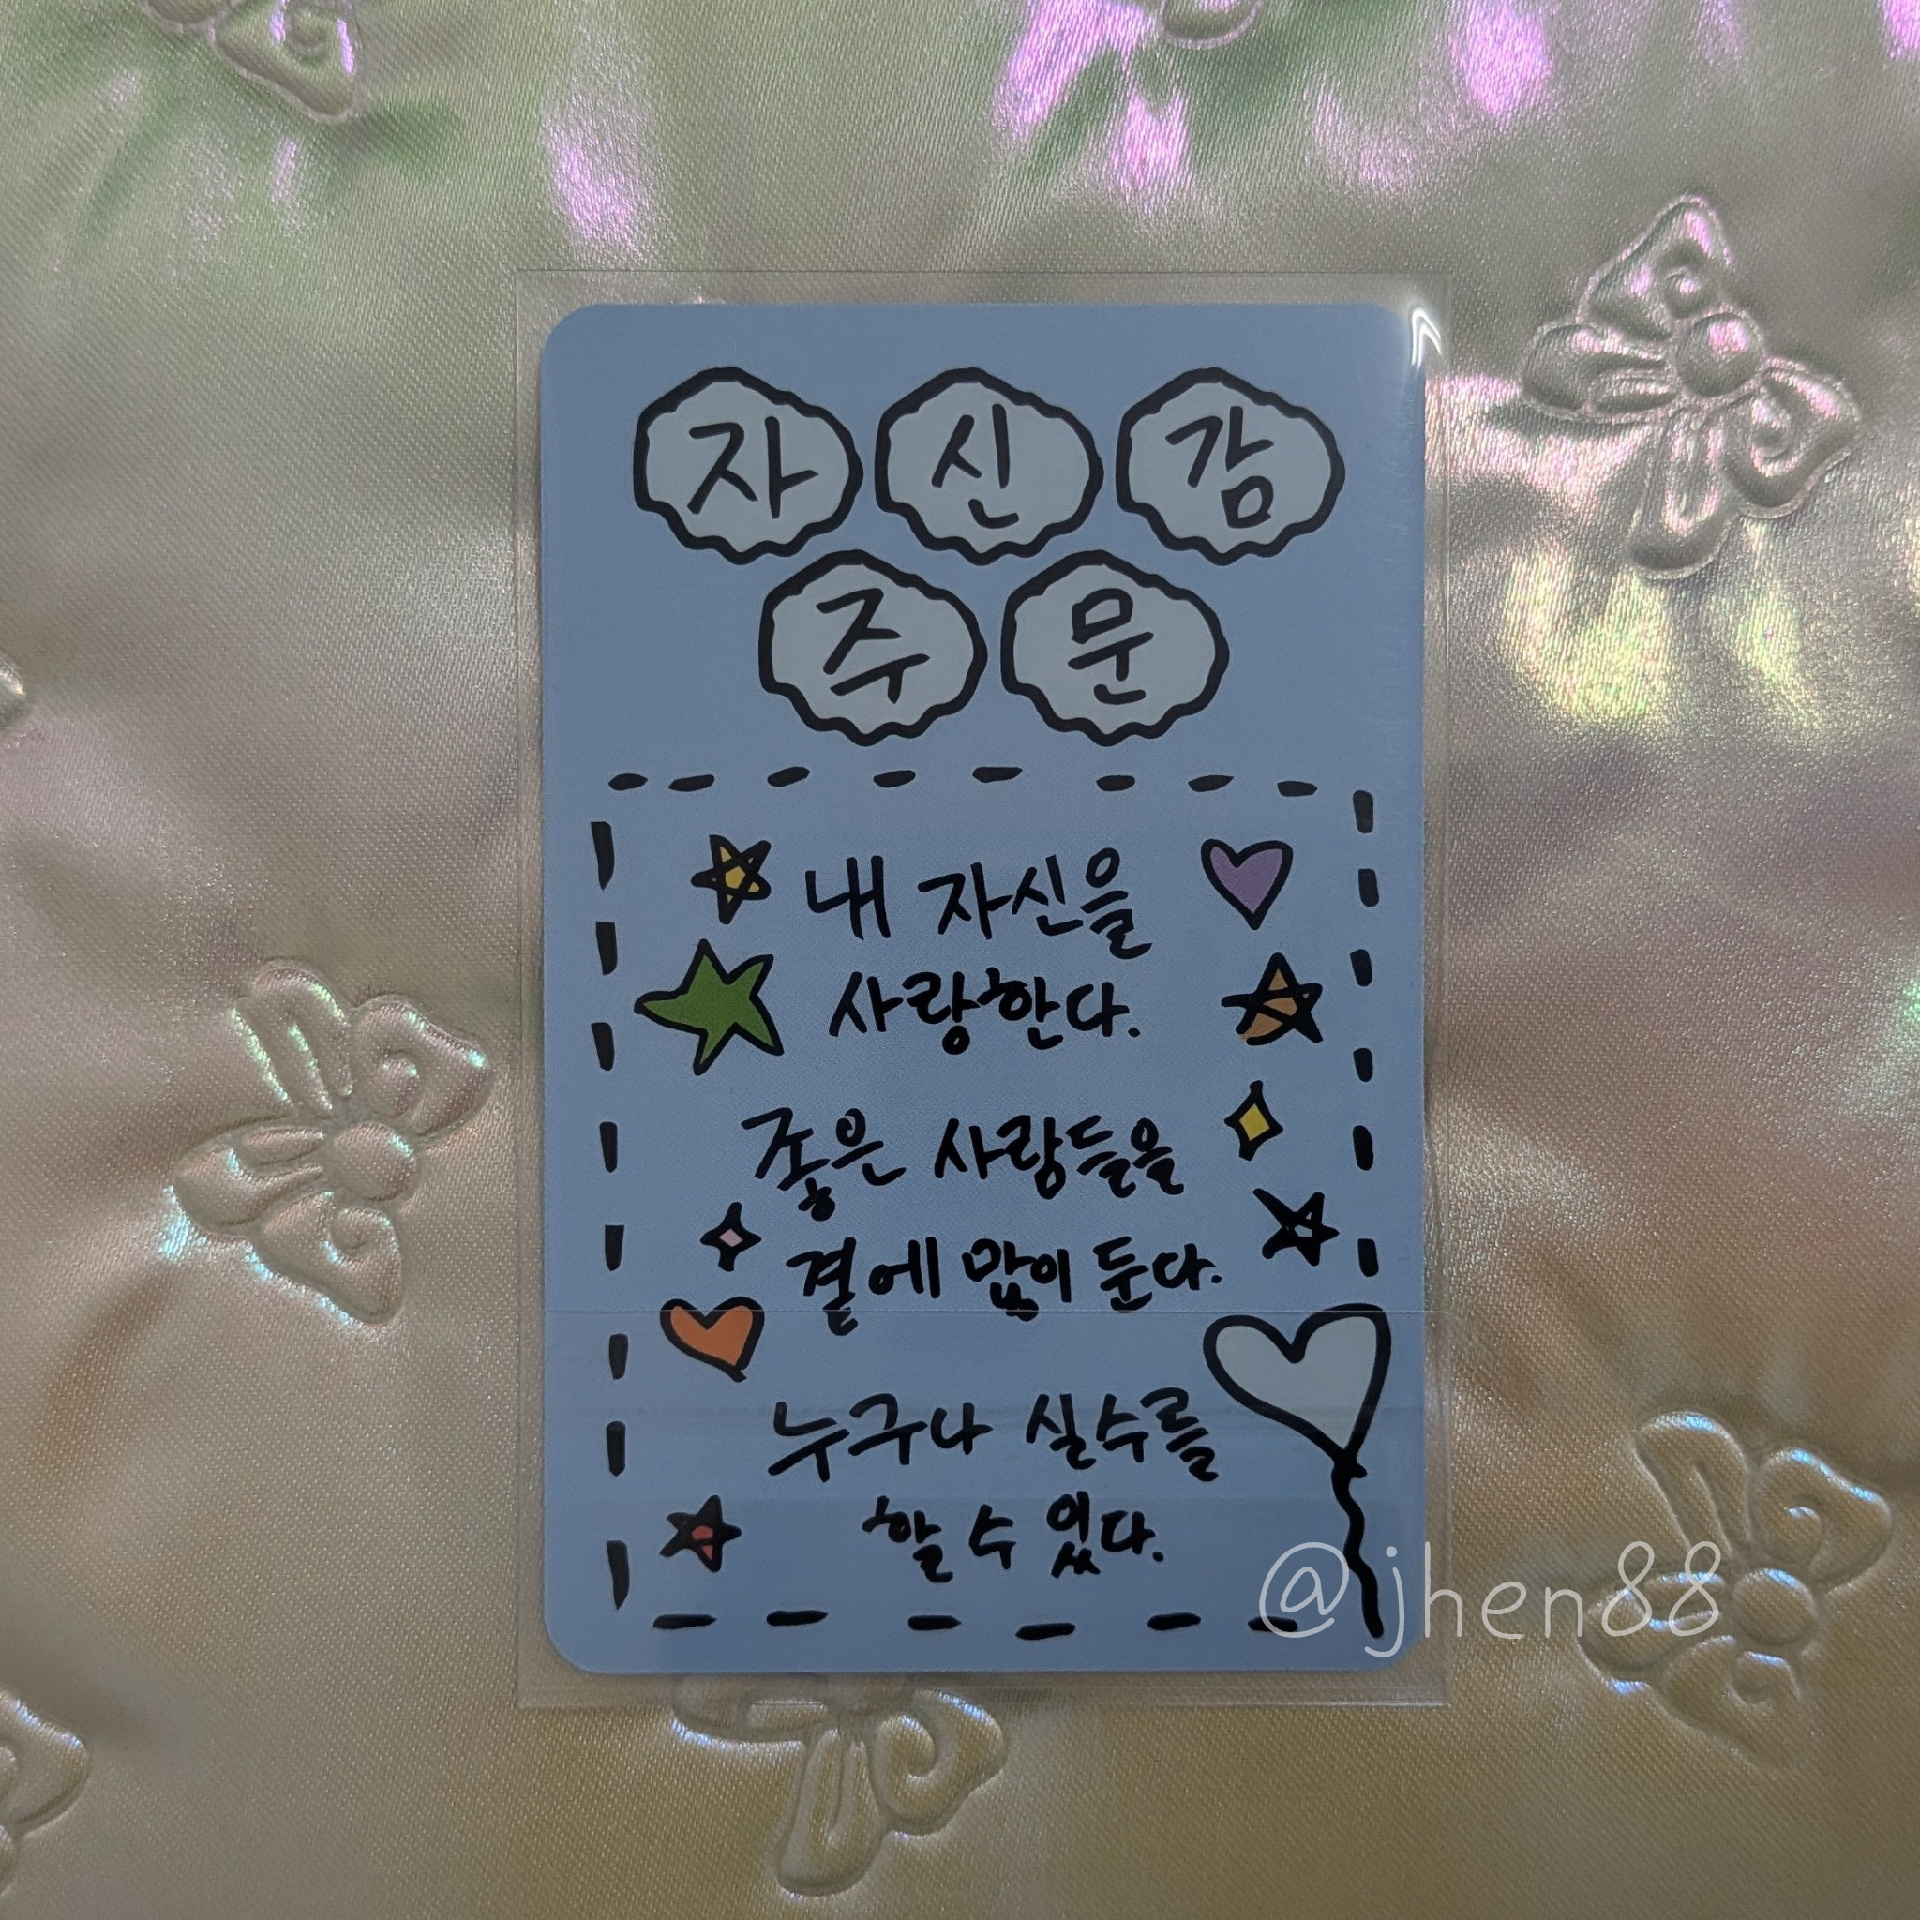 자신감
주문
내 자신을
사랑한다.
좋은 사람들을
곁에 많이 둔다.
누구나 실수를
할 수 있다.
@jhen88